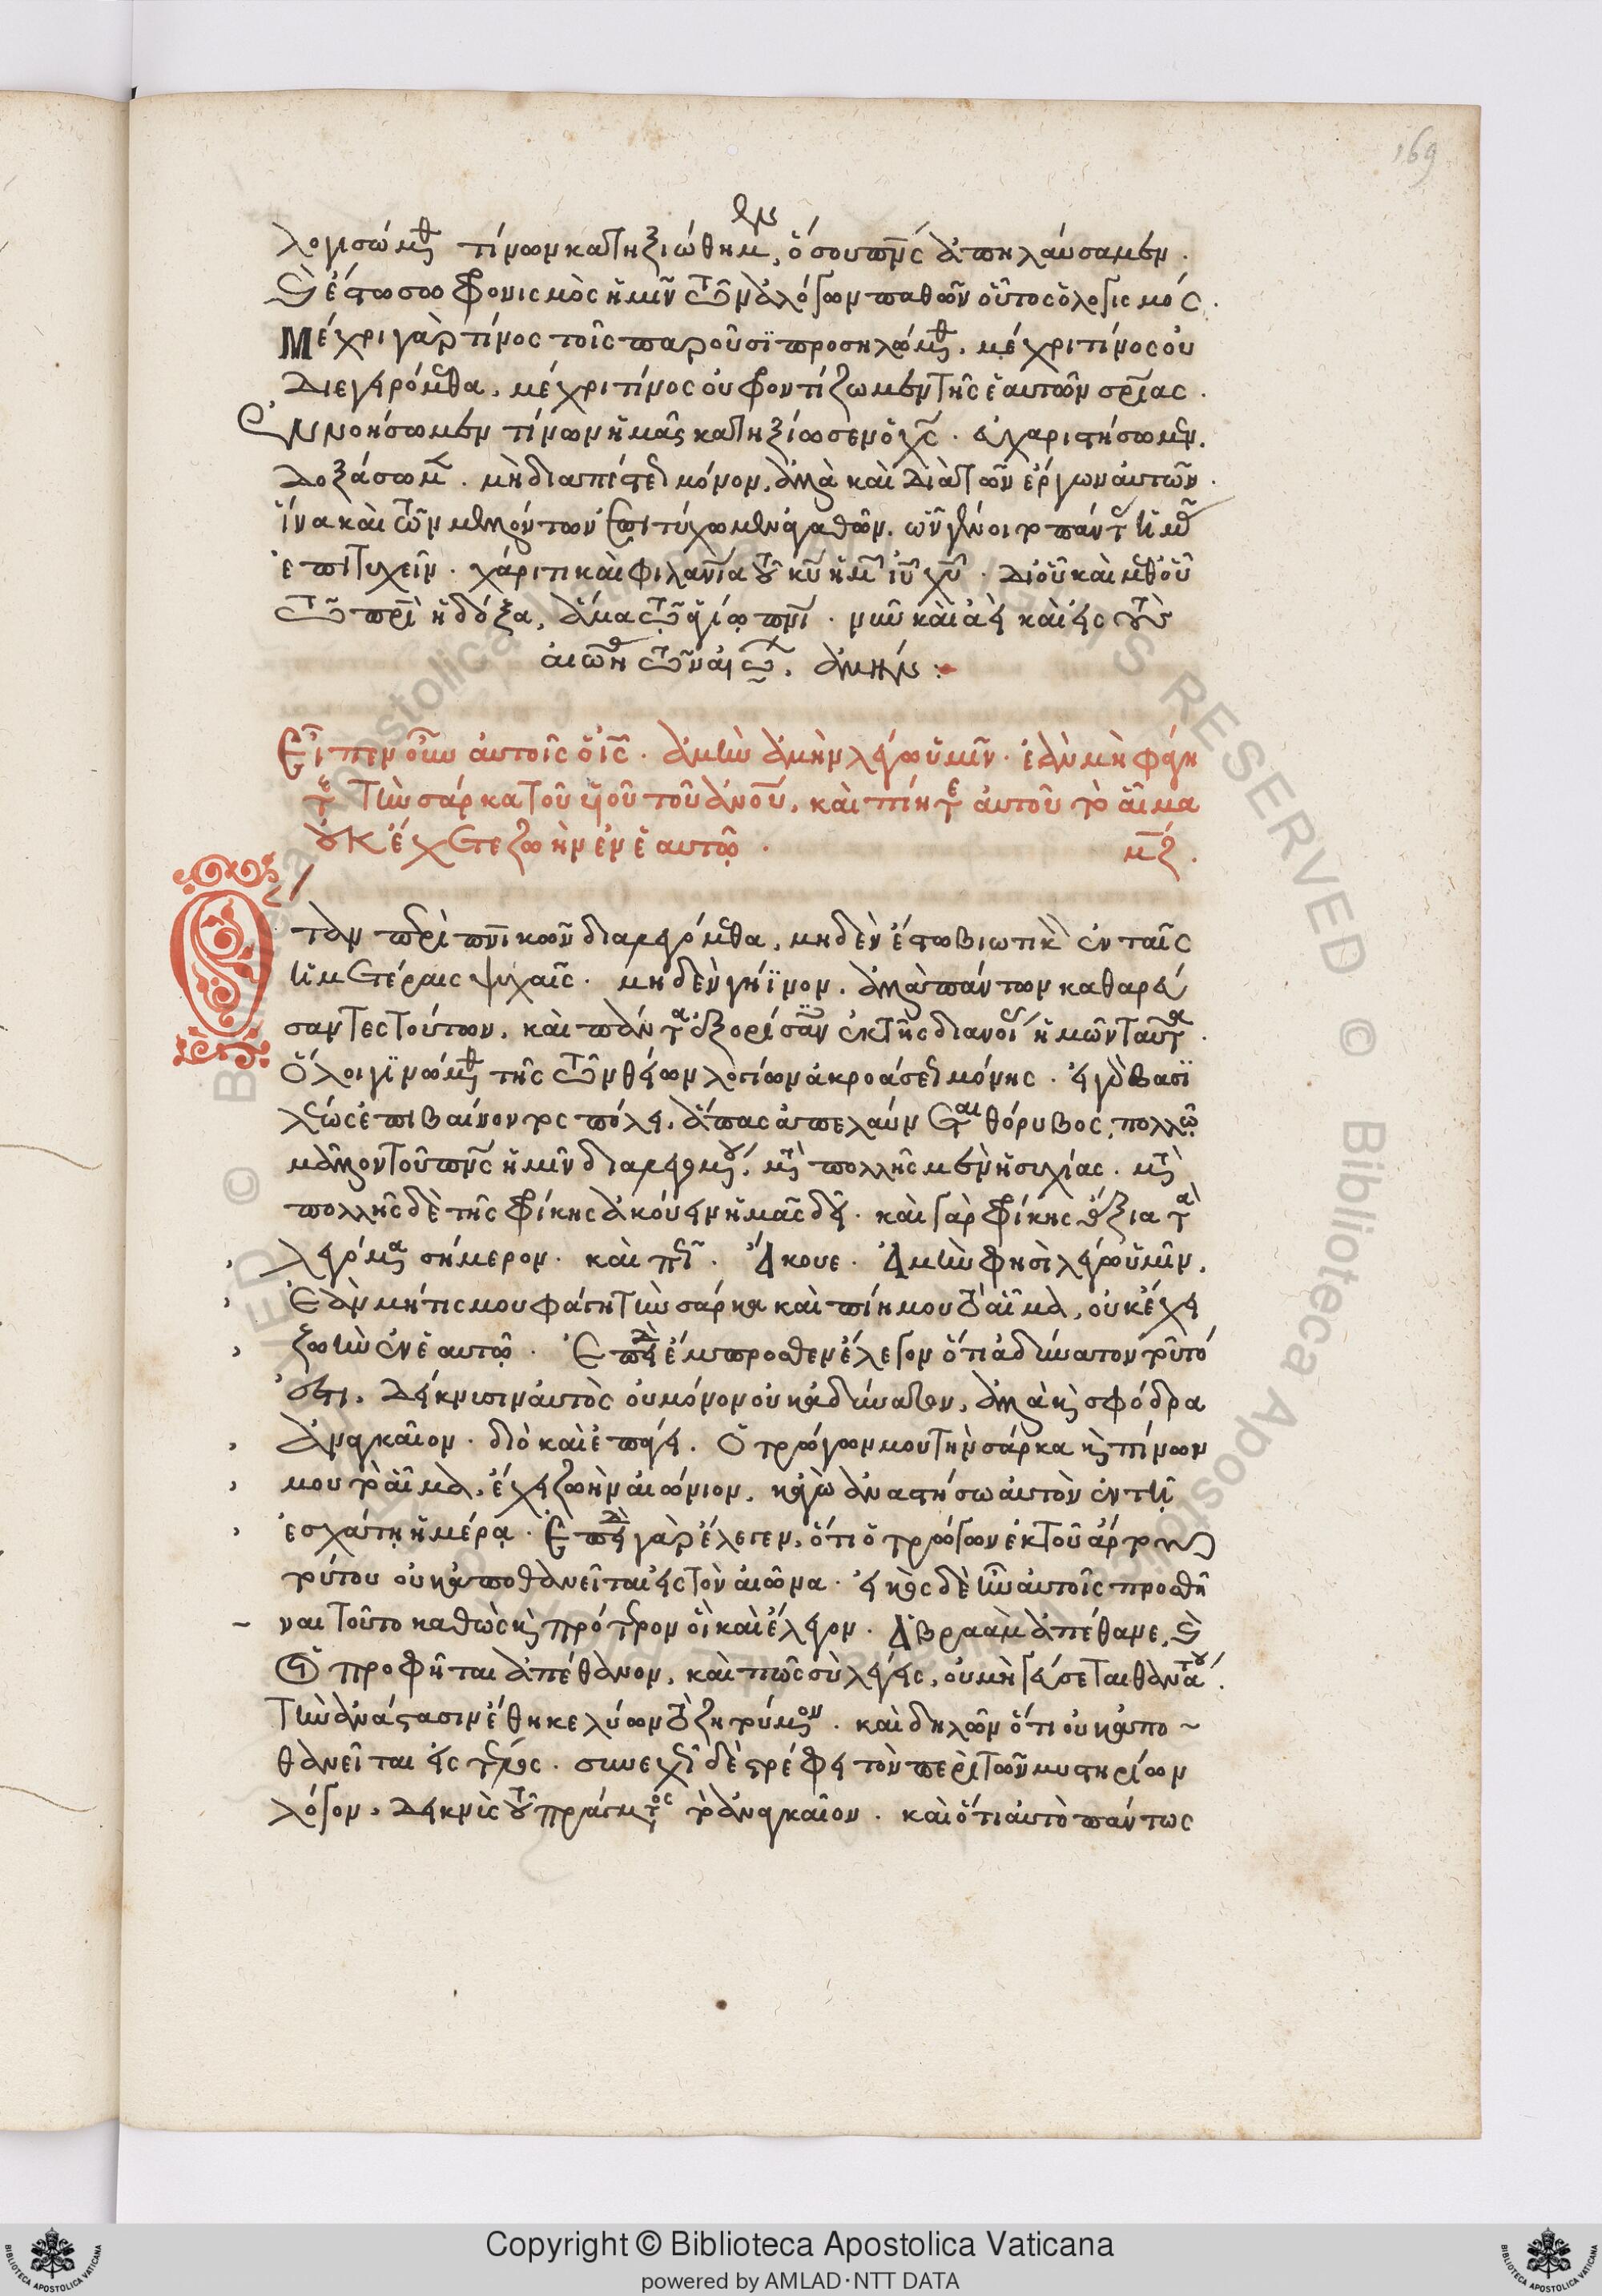 169
λογισώμεθα τίνων κατηξιώθημεν, ὅσου πνς ἀπηλαύσαμεν.
καὶ ἔστω σωφρονισμὸς ἡμῖν τῶν ἀλόγων παθῶν οὗτος ὁ λογισμός.
Μέχρι γὰρ τίνος τοῖς παροῦσι προσηλώμεθα. μέχρι τίνος οὐ
διεγειρόμεθα. μέχρι τίνος οὐ φροντίζωμεν τῆς ἑαυτῶν σρίας.
Ἐννοήσωμεν τίνων ἡμᾶς κατηξίωσεν ὁ χς. εὐχαριστήσωμεν.
δοξάσωμεν. μὴ διὰ πίστεως μόνον, ἀλλὰ καὶ διὰ τῶν ἔργων αὐτῶν.
ἵνα καὶ τῶν μελλόντων ἐπιτύχωμεν ἀγαθῶν. ὧν γένοιτο πάντας ἡμᾶς
ἐπιτυχεῖν. χάριτι καὶ φιλανία τοῦ κυ ἡμῶν ιυ χυ. δι' οὗ καὶ μεθ' οὗ
τῷ πρι ἡ δόξα, ἅμα τῷ ἁγίῳ πνι. νῦν καὶ ἀεὶ καὶ εἰς τοὺς
αἰῶνας τῶν αἰώνων. ἀμήν:
Εἶπεν οὖν αὐτοῖς ὁ ις. ἀμὴν ἀμὴν λέγω ὑμῖν. ἐὰν μὴ φάγη
τε τὴν σάρκα τοῦ υἱοῦ τοῦ ἀνου, καὶ πίητε αὐτοῦ τὸ αἷμα
οὐκ ἔχετε ζωὴν ἐν ἑαυτῷ. μζ.
Ὅταν περὶ πνικῶν διαλεγόμεθα, μηδὲν ἔστω βιωτικὸν ἐν ταῖς
ἡμετέραις ψυχαῖς. μηδὲν γήϊνον. ἀλλὰ πάντων καθαρεύ
σαντες τούτων, καὶ πάντα ἐξορίσαντες ἐκ τῆς διανοίας ἡμῶν ταῦτα.
Ὅλοι γινώμεθα τῆς τῶν θείων λογίων ἀκροάσεως μόνης. εἰ γὰρ βασι
λέως ἐπιβαίνοντος πόλει, ἅπας ἀπελαύνεται θόρυβος, πολλῷ
μᾶλλον τοῦ πνς ἡμῖν διαλεγομένου, μετὰ πολλῆς μὲν ἡσυχίας. μετὰ
πολλῆς δὲ τῆς φρίκης ἀκούειν ἡμᾶς δεῖ. καὶ γὰρ φρίκης ἄξια τὰ
λεγόμενα σήμερον. καὶ πῶς. Ἄκουε. Ἀμὴν φησὶ λέγω ὑμῖν.
Ἐὰν μή τις μου φάγη τὴν σάρκα καὶ πίη μου τὸ αἷμα, οὐκ ἔχει
ζωὴν ἐν ἑαυτῷ. Ἐπειδὴ ἔμπροσθεν ἔλεγον ὅτι ἀδύνατον τοῦτό
ἐστι, δείκνυσιν αὐτὸς οὐ μόνον οὐκ ἀδύνατον, ἀλλὰ καὶ σφόδρα
ἀναγκαῖον. διὸ καὶ ἐπάγει. Ὁ τρώγων μου τὴν σάρκα καὶ πίνων
μου τὸ αἷμα, ἔχει ζωὴν αἰώνιον, κἀγὼ ἀναστήσω αὐτὸν ἐν τῇ
ἐσχάτῃ ἡμέρᾳ. Ἐπειδὴ γὰρ ἔλεγεν, ὅτι ὁ τρώγων ἐκ τοῦ ἄρτου
τούτου οὐκ ἀποθανεῖται εἰς τὸν αἰῶνα. εἰκὸς δὲ ἦν αὐτοῖς προσθῆ
ναι τοῦτο καθὼς καὶ πρότερον οἳ καὶ ἔλεγον. Ἀβραὰμ ἀπέθανε, καὶ
οἱ προφῆται ἀπέθανον, καὶ πῶς σὺ λέγεις, οὐ μὴ γεύσεται θανάτου.
Τὴν ἀνάστασιν ἔθηκε λύων τὸ ζητούμενον. καὶ δηλῶν ὅτι οὐκ ἀπο
θανεῖται εἰς τέλος. συνεχῶς δὲ στρέφει τὸν περὶ τῶν μυστηρίων
λόγον, δεικνὺς τοῦ πράγματος τὸ ἀναγκαῖον. καὶ ὅτι αὐτὸ πάντως
Copyright © Biblioteca Apostolica Vaticana
powered by AMLAD·NTT DATA